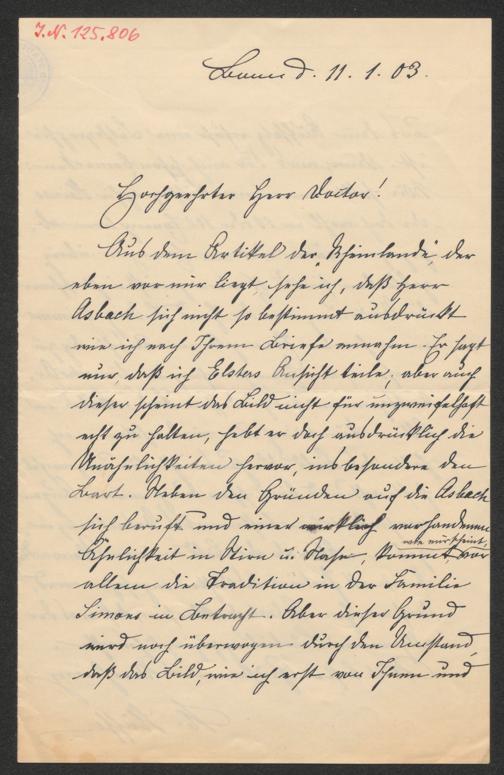 J.N. 125.806
Bonn d. 11. 1. 03.
Hochgeehrter Herr Doctor!
Aus dem Artikel der „Rheinlande" der
eben vor mir liegt, sehe ich, daß Herr
Asbach sich nicht so bestimmt ausdrückt
wie ich nach Ihrem Briefe annahm. Er sagt
nur, daß ich Elsters Ansicht teile, aber auch
dieser scheint das Bild nicht für unzweifelhaft
echt zu halten, hebt er doch ausdrücklich die
Unähnlichkeiten hervor, insbesondere den
Bart. Neben den Gründen auf die Asbach
sich beruft und einer wirklich vorhandenen
Ähnlichkeit in Stirn u. Nase, kommt, wie mir scheint, vor
allem die Tradition in der Familie
Simons in Betracht. Aber dieser Grund
wird noch überwogen durch den Umstand,
daß das Bild, wie ich erst von Ihnen und